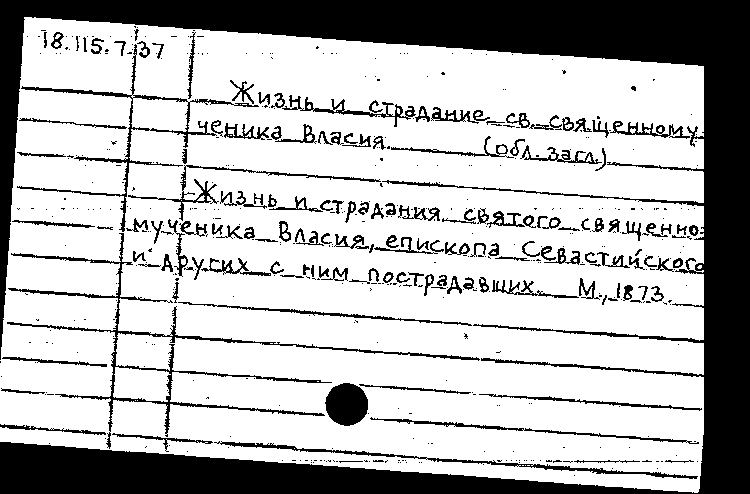 18.115.7.37
Жизнь и страдание св. священному-
ченика Власия (обл. загл.)
Жизнь и страдания святого священно-
мученика Власия, епископа Севастийского
и других с ним пострадавших. М., 1873.